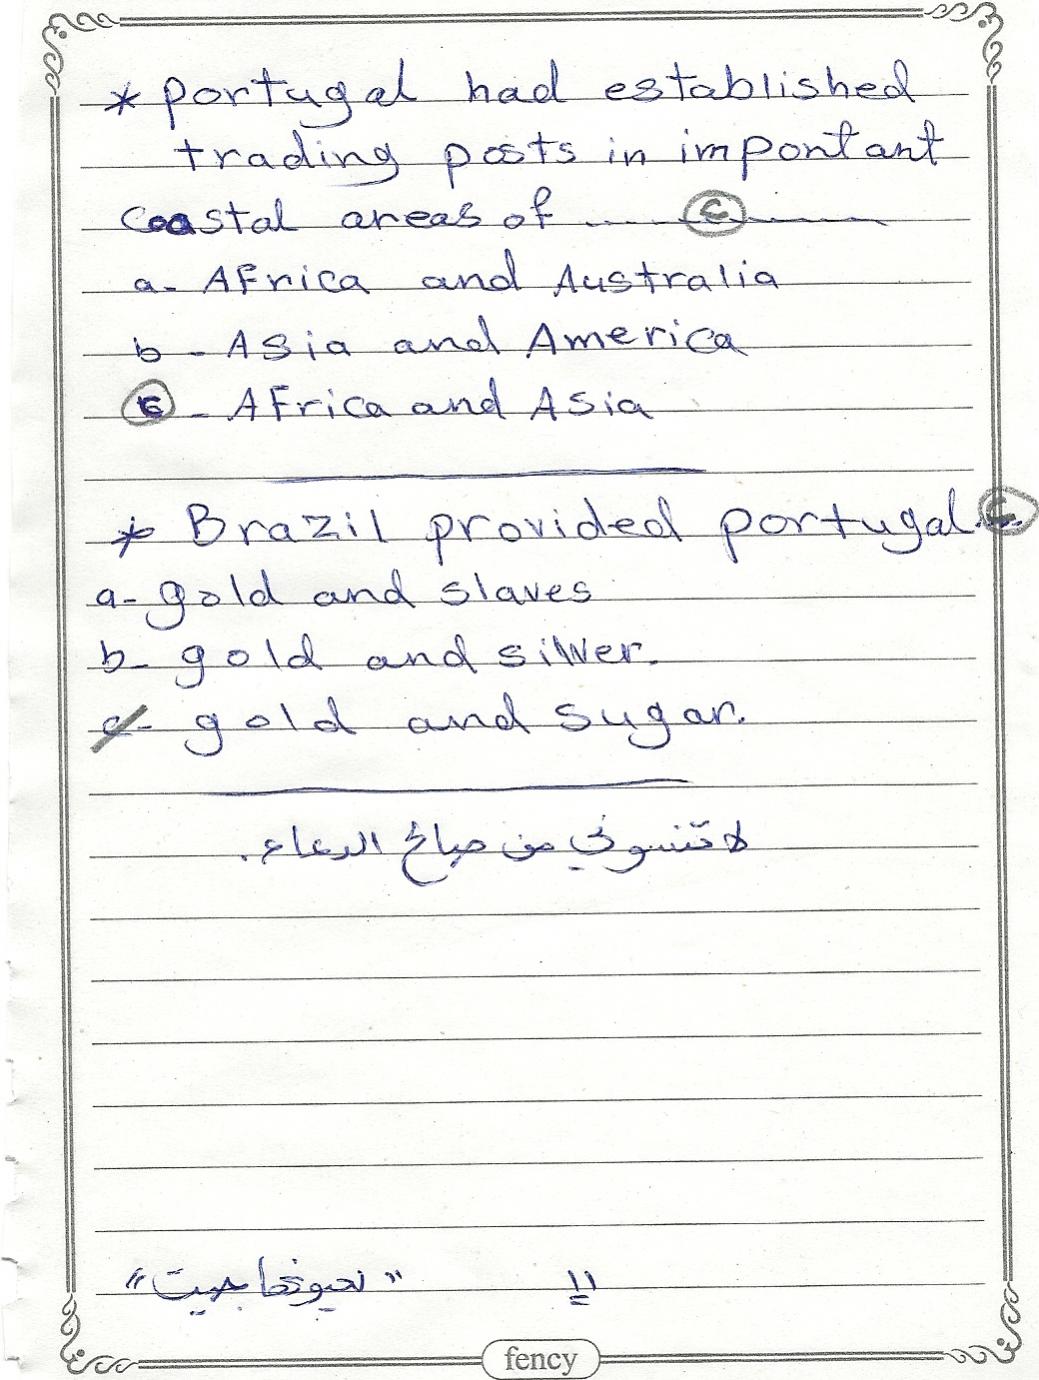 * Portugal had established
trading posts in important
Coastal areas of ........ C
a- AFrica and Australia
b - Asia and America
C - AFrica and Asia
* Brazil provided portugal.. C
a- gold and slaves
b- gold and silver.
c- gold and sugar.
لا تنسوني من صالح الدعاء.
١١
fency